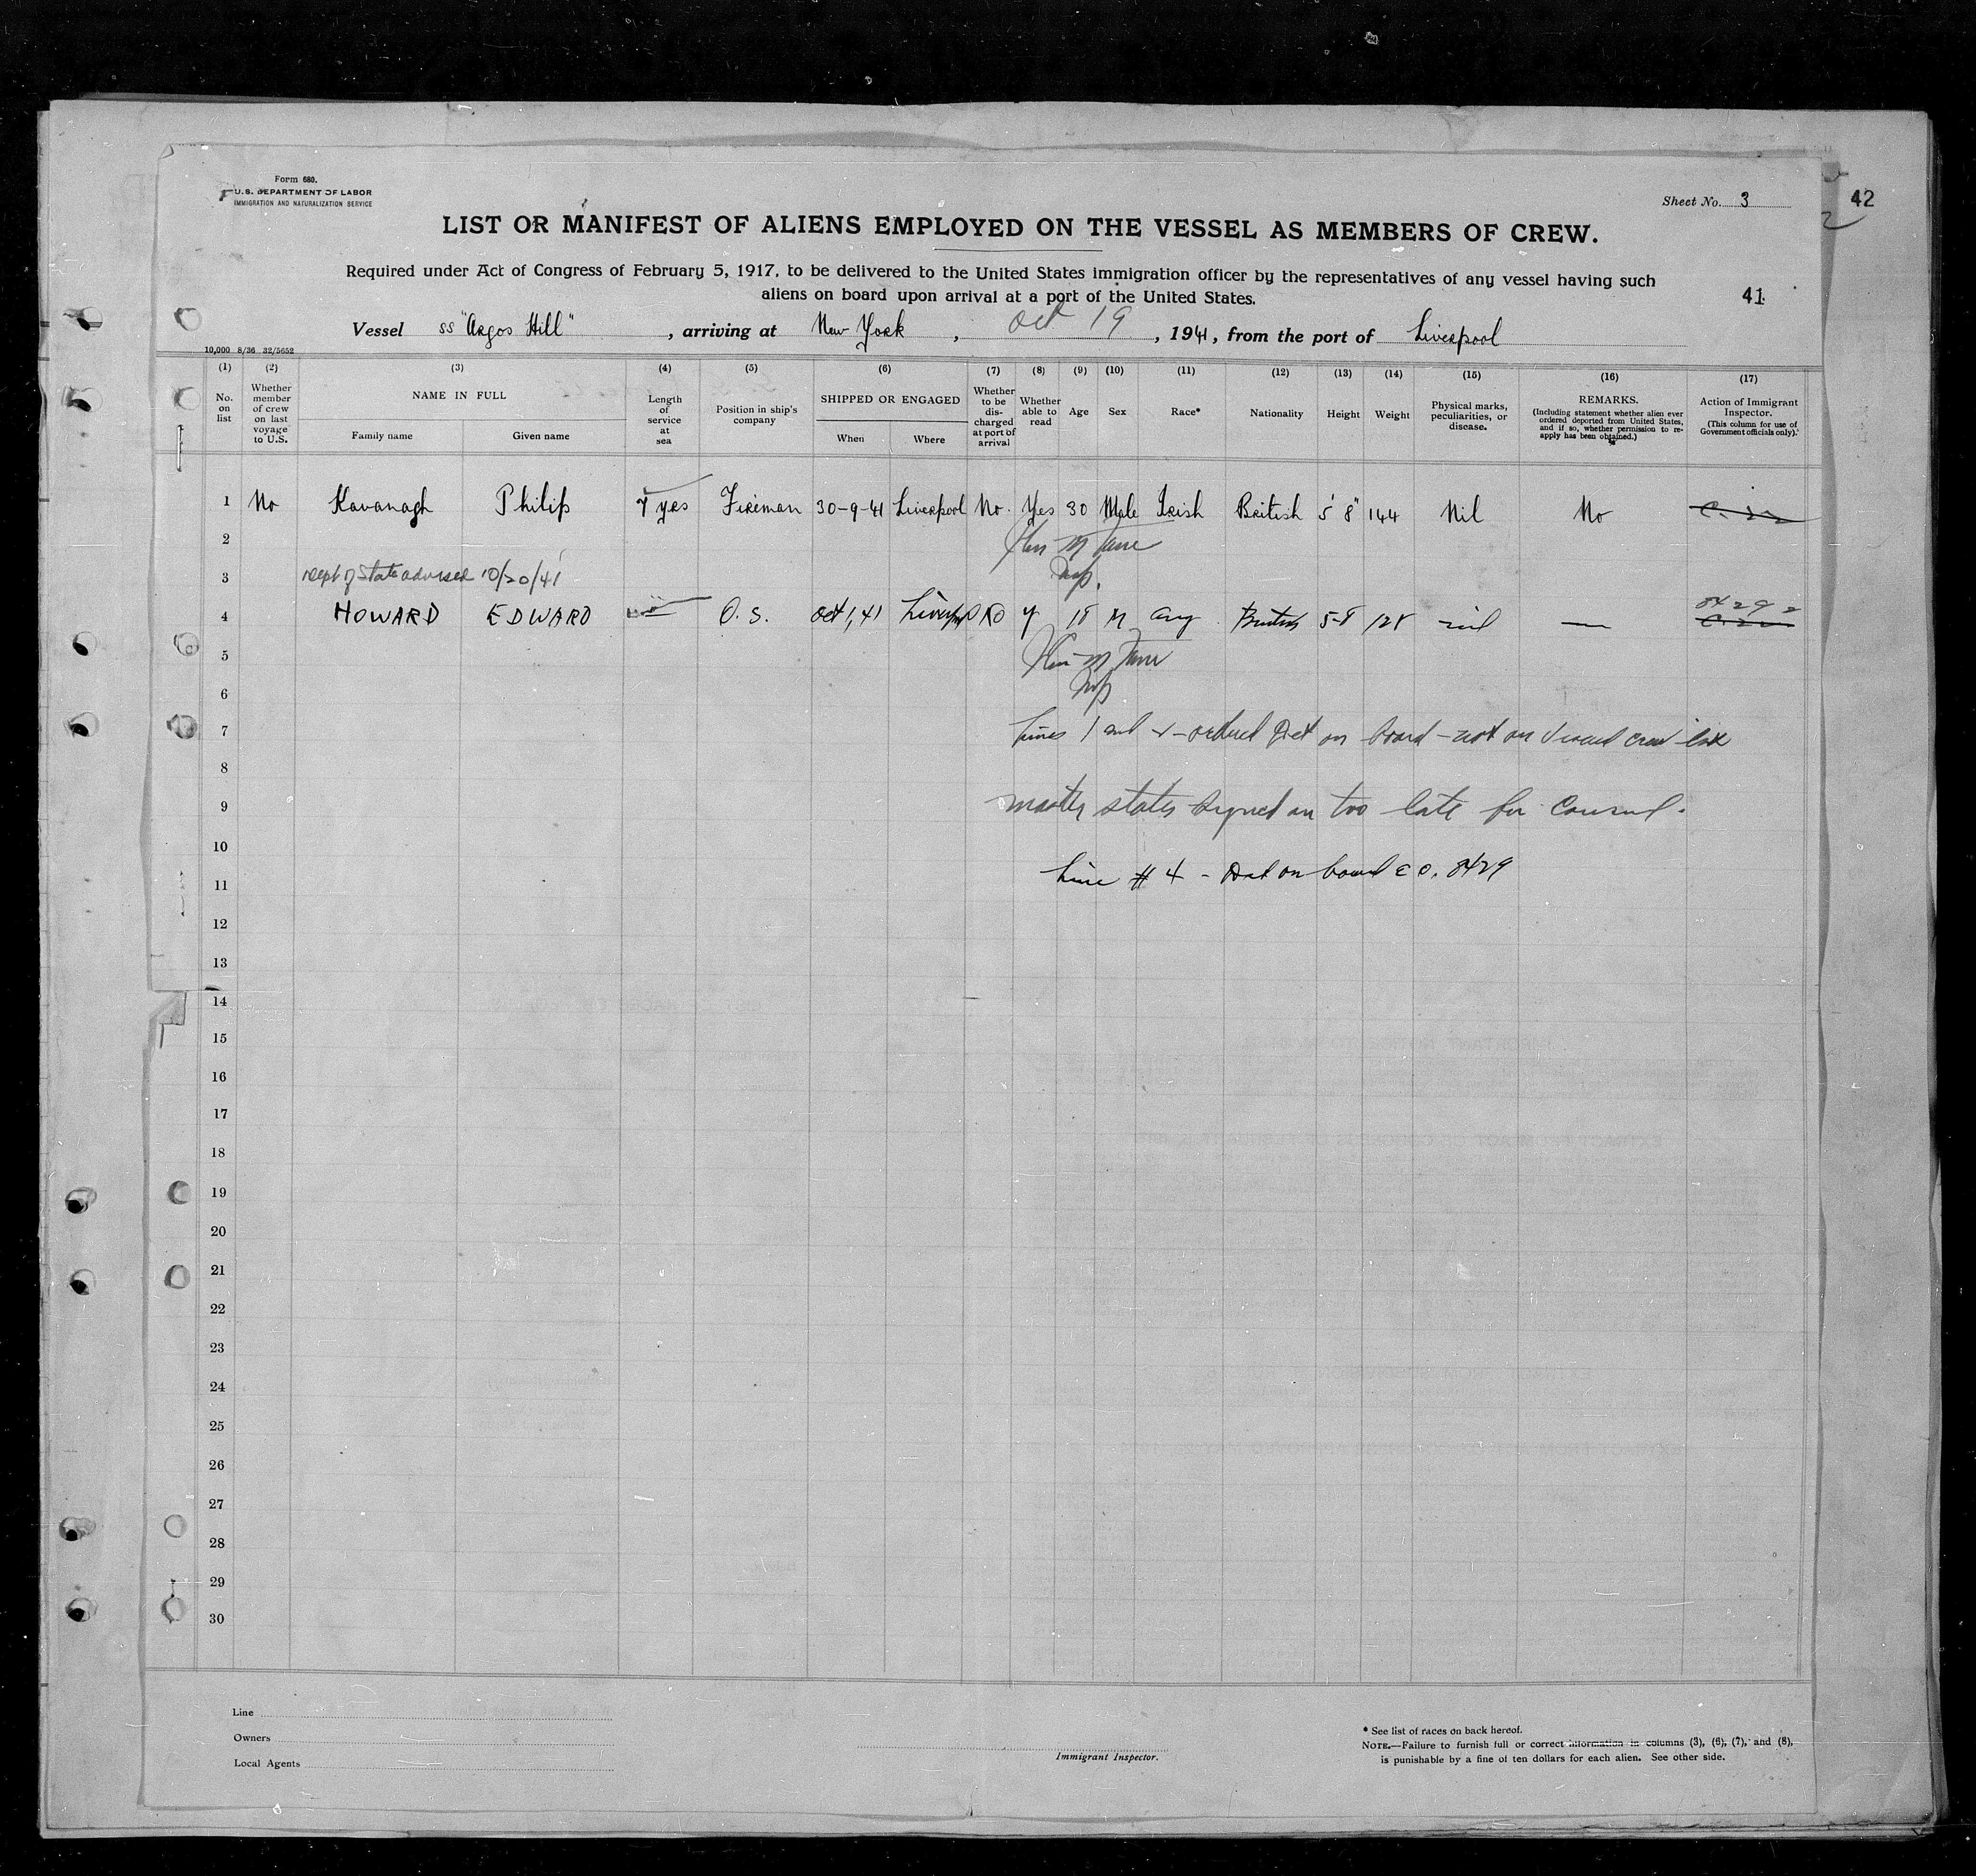 Form 680.
U.S. DEPARTMENT OF LABOR
IMMIGRATION AND NATURALIZATION SERVICE
Sheet No. 3
42
LIST OR MANIFEST OF ALIENS EMPLOYED ON THE VESSEL AS MEMBERS OF CREW.
Required under Act of Congress of February 5, 1917, to be delivered to the United States immigration officer by the representatives of any vessel having such
aliens on board upon arrival at a port of the United States.
41
Vessel SS "Argos Hill", arriving at New York, Oct 19, 1941, from the port of Liverpool
10,000 8/36 32/5652
(1) (2) (3) (4) (5) (6) (7) (8) (9) (10) (11) (12) (13) (14) (15) (16) (17)
No. on list
Whether member of crew on last voyage to U.S.
NAME IN FULL
Family name
Given name
Length of service at sea
Position in ship's company
SHIPPED OR ENGAGED
When
Where
Whether to be discharged at port of arrival
Whether able to read
Age
Sex
Race*
Nationality
Height
Weight
Physical marks, peculiarities, or disease.
REMARKS.
(Including statement whether alien ever ordered deported from United States, and if so, whether permission to reapply has been obtained.)
Action of Immigrant Inspector.
(This column for use of Government officials only).
1 No Kavanagh Philip 7 yrs Fireman 30-9-41 Liverpool No. Yes 30 Male Irish British 5' 8" 144 Nil No
2
3 Dept of State advised 10/20/41
Insp.
4 HOWARD EDWARD O.S. Oct 1, 41 Liverpool NO Y 18 M British 5-8 128 nil — 8429
5
6 Insp
7 Lines 1 and 4 - ordered Det on board - not on visaed crew list
8
9 master states signed on too late for Consul.
10
11 Line # 4 - Det on board E.O. 8429
12
13
14
15
16
17
18
19
20
21
22
23
24
25
26
27
28
29
30
Line
Owners
Local Agents
Immigrant Inspector.
* See list of races on back hereof.
NOTE.—Failure to furnish full or correct information in columns (3), (6), (7), and (8),
is punishable by a fine of ten dollars for each alien. See other side.